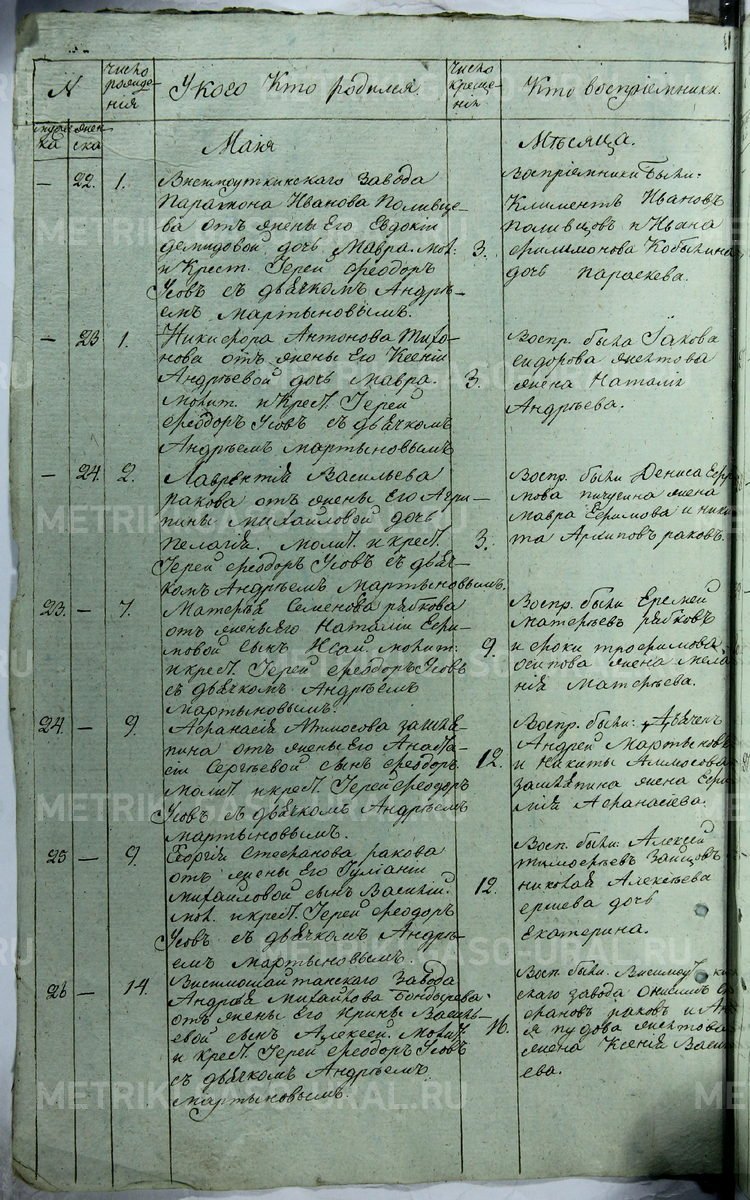 N
число рожде- ния
У кого Кто родился.
число креще- нiя
Кто восприемники
мужес- ка
женс- ка
Маiя
Мѣсяца.
— 22. 1. Висимоуткинскаго завода
Парамона Иванова Поливце-
ва отъ жены Его Евдокiи
Демидовой дочь Мавра. мол:
и Крест. Iерей Феодоръ
Усовъ съ дьячкомъ Андрѣ-
емъ Мартыновымъ.
3.
Восприемники были:
Климентъ Ивановъ
Поливцовъ и Ивана
Филимонова Кобылина
дочь Параскева.
— 23 1. Никифора Антонова Тихо-
нова отъ жены Его Ксенiи
Андрѣевой дочь Мавра.
Молит. и Крест. Iерей
Феодоръ Усовъ съ дьячкомъ
Андрѣемъ Мартыновымъ
3.
Воспр. была Iакова
Сидорова
жена Наталiя
Андрѣева.
— 24. 2. Лаврентiя Васильева
Ракова отъ жены Его Агри-
пины Михайловой дочь
Пелагiя. Молит. и крест.
Iерей Феодоръ Усовъ съ дьяч-
комъ Андрѣемъ Мартыновымъ.
3.
Воспр. были Дениса Ефи-
мова Пичугина жена
Мавра Ефимова и Ники-
та Архиповъ Раковъ.
23. — 7. Матвѣя Семенова Рябкова
отъ жены Его Наталiи Ефи-
мовой сынъ Исаiй. молит.
и крест. Iерей Феодоръ Усовъ
съ дьячкомъ Андрѣемъ
Мартыновымъ.
9.
Воспр. были Еремей
Матвѣевъ Рябковъ
и Фроки Трофимова
Осипова жена Мела-
нiя Матвѣева.
24. — 9. Афанасiя Амосова Зашля-
пина отъ жены Его Анаста-
сiи Сергѣевой сынъ Феодоръ.
Молит. и крест. Iерей Феодоръ
Усовъ съ дьячкомъ Андрѣемъ
Мартыновымъ.
12.
Воспр. были: дьячек
Андрей Мартыновъ
и Никиты Амосова
Зашляпина жена
Афанасiева.
25 — 9. Георгiя Стефанова Ракова
отъ жены Его Iулiанiи
Михайловой сынъ Василiй.
Мол. и крест. Iерей Феодоръ
Усовъ съ дьячкомъ Андрѣ-
емъ Мартыновымъ.
12.
Восп. были: Алексей
Тимофѣевъ Зайцовъ
Николая Алексѣева
Ершева дочь
Екатерина.
26 — 14. Висимошайтанскаго Завода
Андрея Михайлова Бондырева
отъ жены Его Ирины Василь-
евой сынъ Алексей. Молит.
и крест. Iерей Феодоръ Усовъ
съ дьячкомъ Андрѣемъ
Мартыновымъ.
16.
Восп. были: Висимоуткин-
скаго завода Онисимъ
Раковъ и
Пудова
жена Ксенiя Василь-
ева.
METRIKI.GASO-URAL.RU